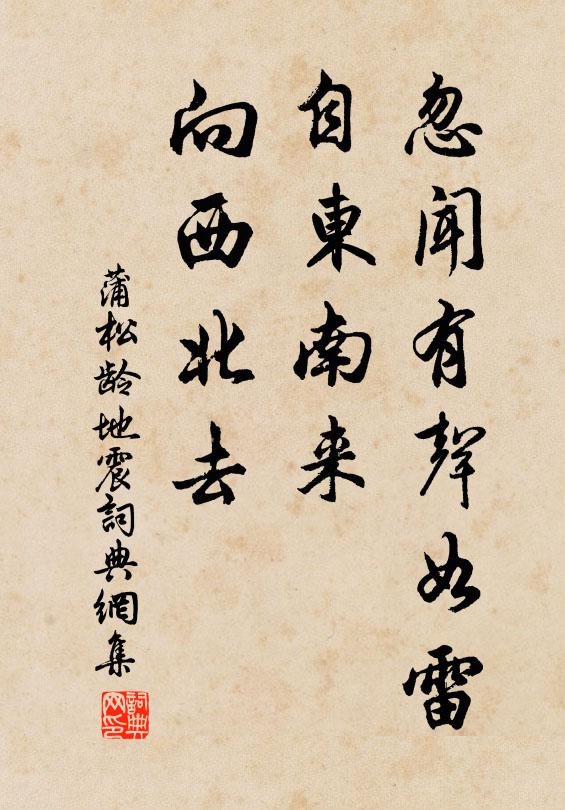 忽闻有聲如雷
自東南来
向西北去
蒲松龄地震詞典網集
詞典网印